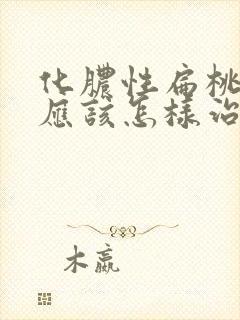 化脓性扁桃
应该怎样治
木嬴